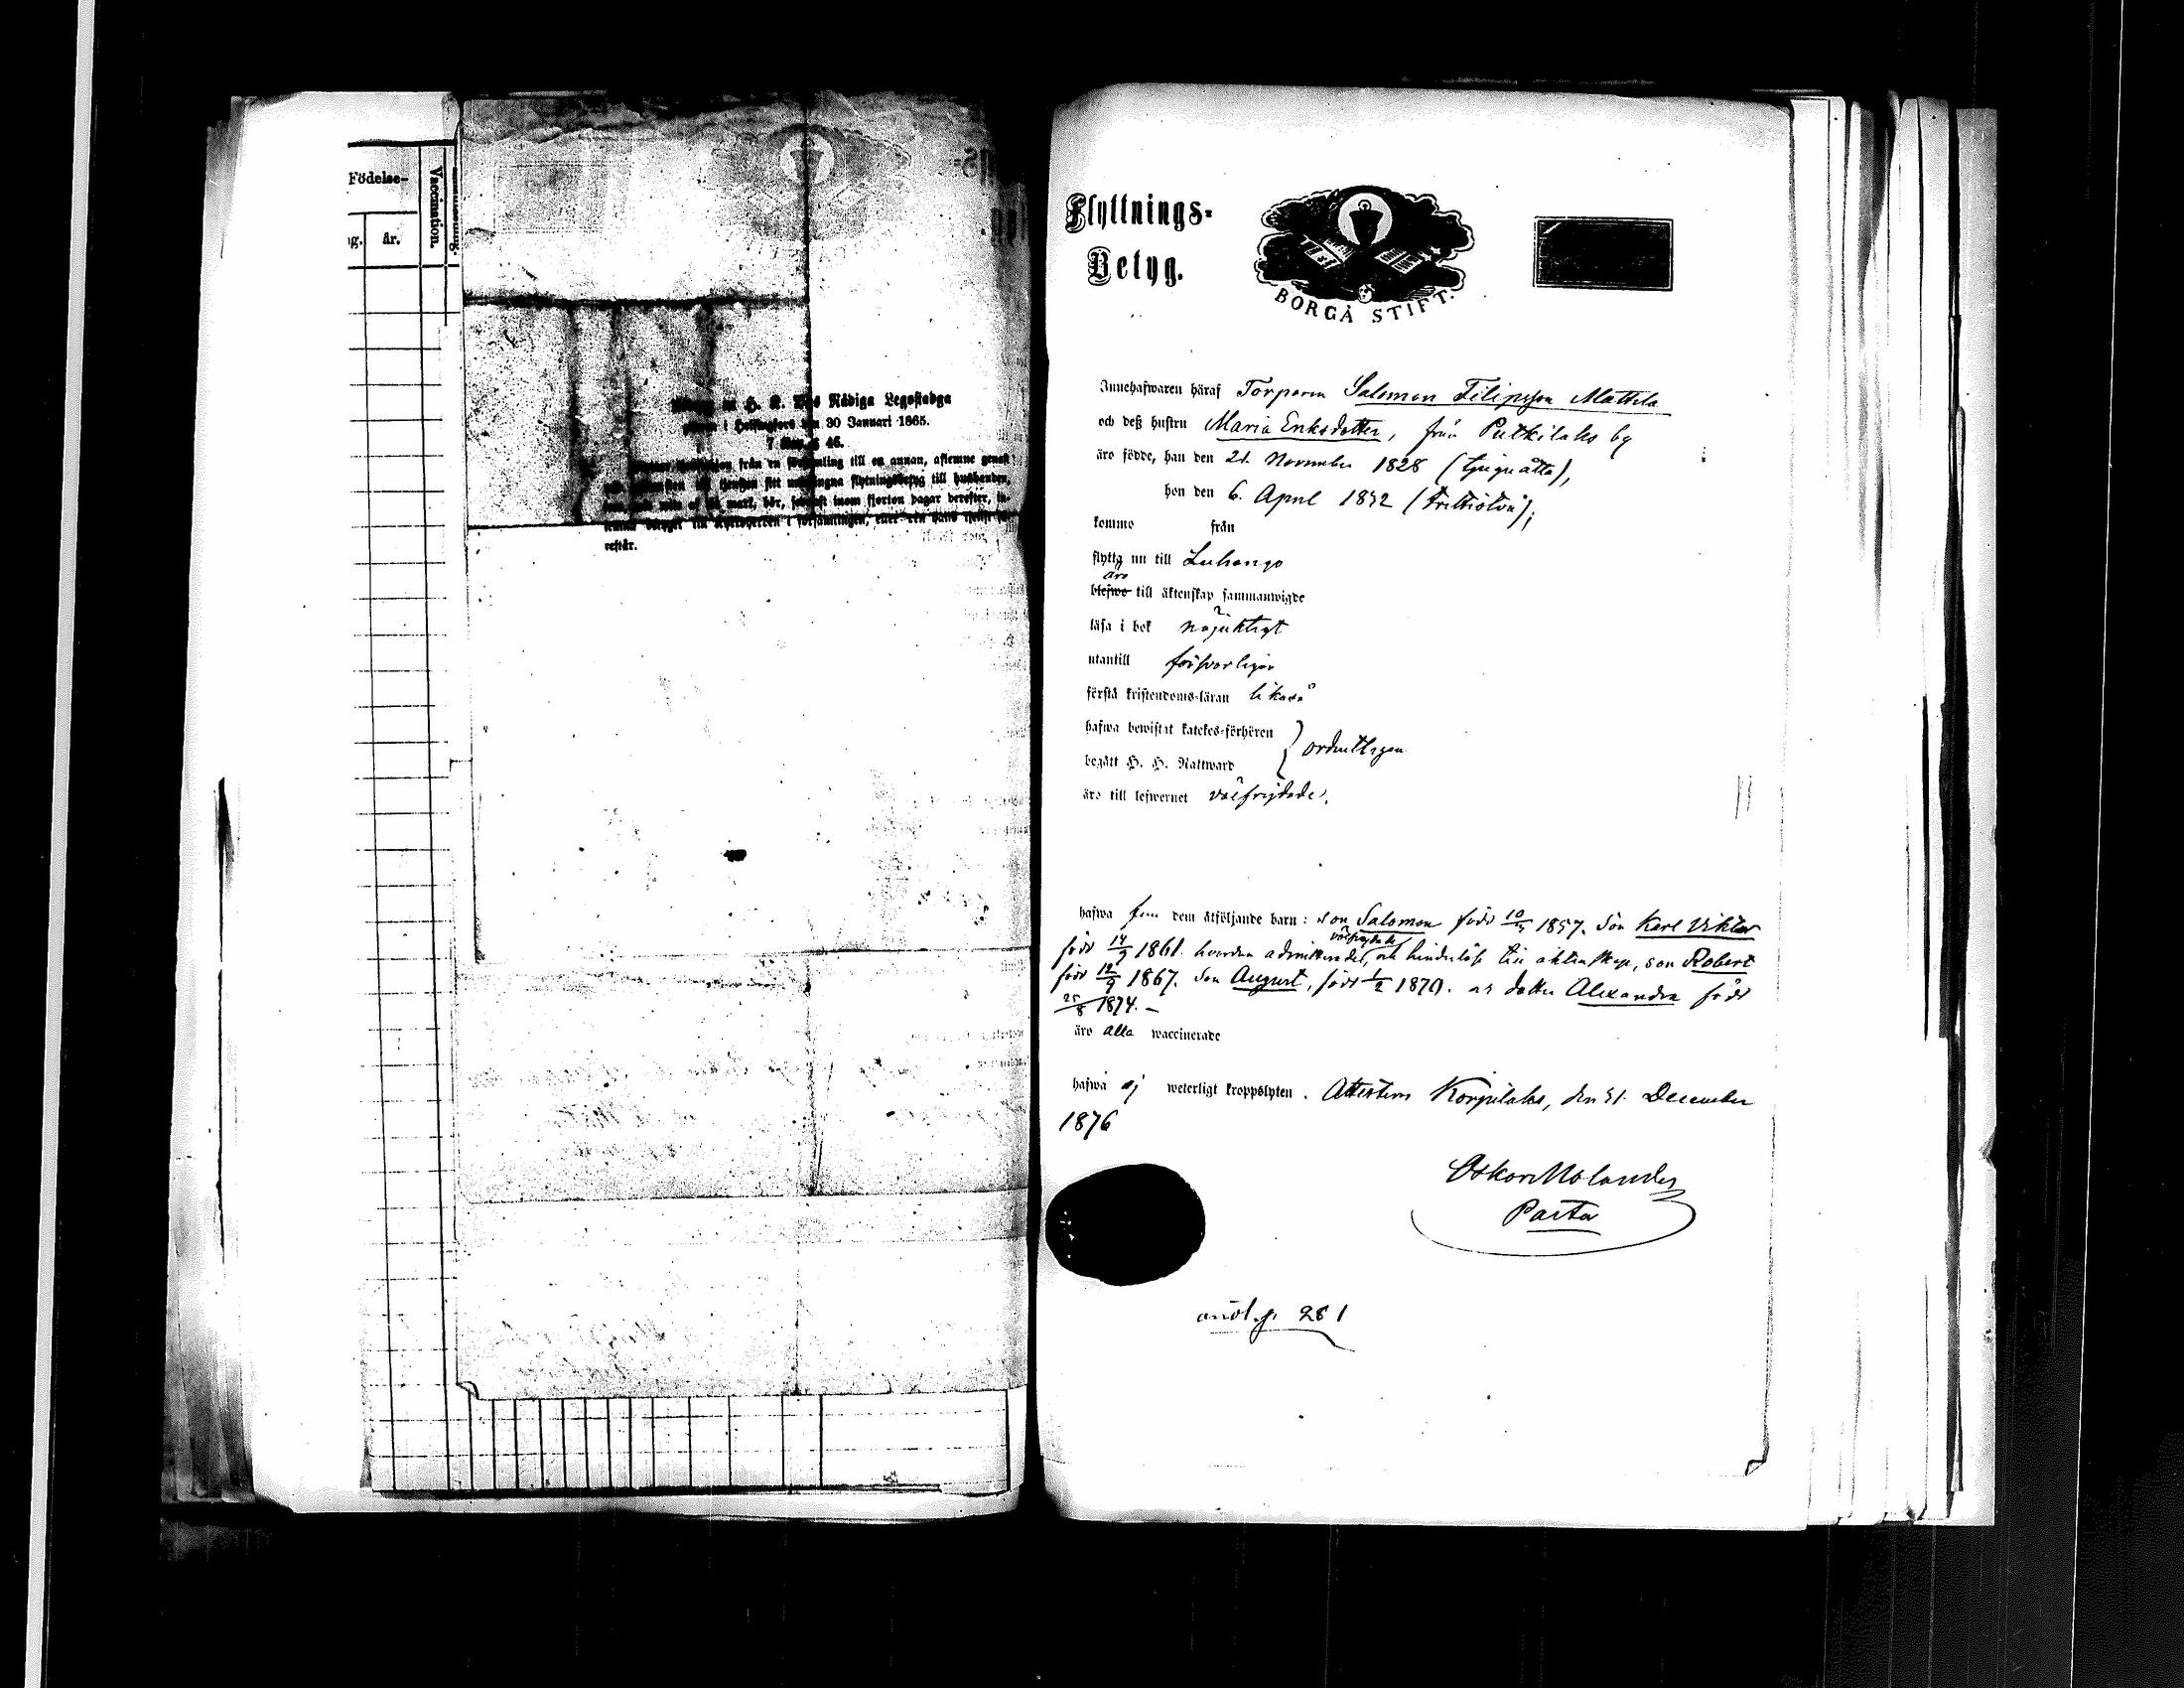 Födelse-
år.
Vaccination.
Nådiga Legostadga
i Helsingfors den 30 Januari 1865.
46.
från en församling till en annan, aflemne genast
sitt undfångna flyttningsbetyg till husbonden,
bör, sednast inom fjorton dagar derefter, in-
i församlingen, eller
reftår.
Flyttnings-
Betyg.
BORGÅ STIFT.
Innehafwaren häraf Torparen Salomon Filipsson Mattila
och deß hustru Maria Eriksdotter, från Putkilaks by
äro födde, han den 21. November 1828 (tjuguåtta),
hon den 6. April 1832 (trettiotvå);
komme från
flytta nu till Luhango
äro
blefwo till äktenskap sammanwigde
läsa i bok nöjaktigt
utantill försvarligen
förstå kristendoms-läran likaså
hafwa bewistat katekes-förhören
ordentligen
begått H. H. Nattward
äro till lefwernet välfrejdade.
hafwa fem dem åtföljande barn: son Salomon född 10/5 1857. Son Karl Viktor
välfrejdade
född 14/9 1861. hvardera admitterade, och hinderlöse till äktenskap, son Robert
född 12/9 1867. Son August, född 1/2 1870. och dotter Alexandra född
25/8 1874. –
äro alla waccinerade
hafwa ej weterligt kroppslyten. Attesterar Korpilaks, den 31. December
1876
Oskar Molander
Pastor
anöt. p. 281